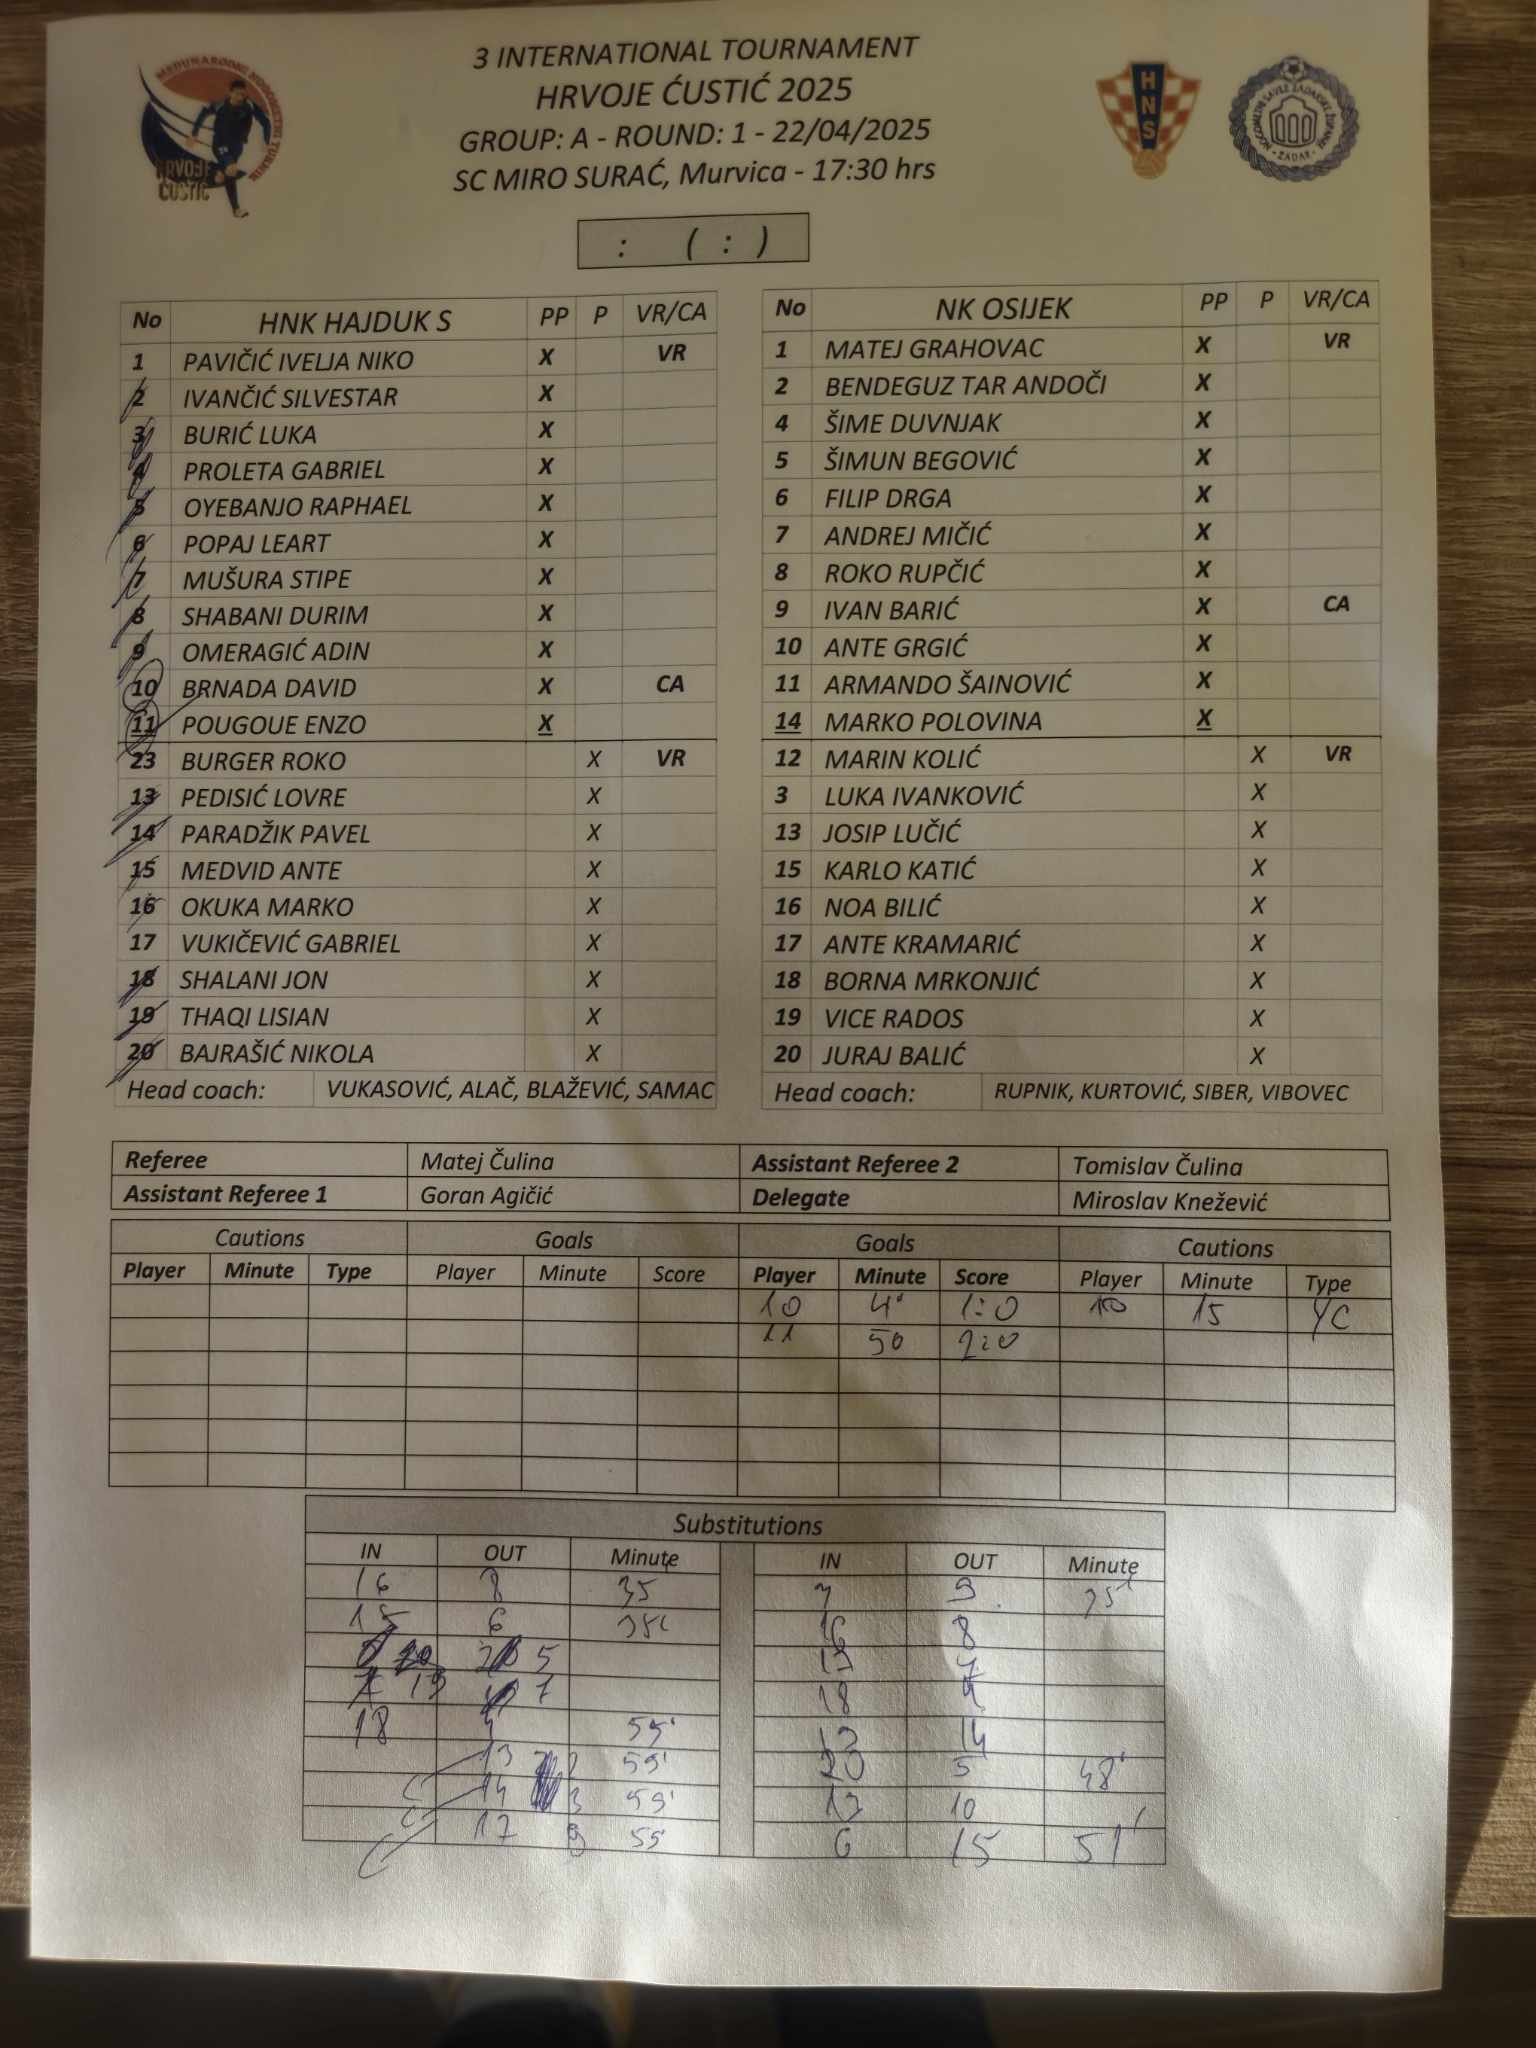 MEĐUNARODNI NOGOMETNI TURNIR
HRVOJE
ĆUSTIĆ
3 INTERNATIONAL TOURNAMENT
HRVOJE ĆUSTIĆ 2025
GROUP: A - ROUND: 1 - 22/04/2025
SC MIRO SURAĆ, Murvica - 17:30 hrs
HNS
NOGOMETNI SAVEZ ZADARSKE ŽUPANIJE
ZADAR
: ( : )
No HNK HAJDUK S PP P VR/CA
1 PAVIČIĆ IVELJA NIKO X VR
2 IVANČIĆ SILVESTAR X
3 BURIĆ LUKA X
4 PROLETA GABRIEL X
5 OYEBANJO RAPHAEL X
6 POPAJ LEART X
7 MUŠURA STIPE X
8 SHABANI DURIM X
9 OMERAGIĆ ADIN X
10 BRNADA DAVID X CA
11 POUGOUE ENZO X
23 BURGER ROKO X VR
13 PEDISIĆ LOVRE X
14 PARADŽIK PAVEL X
15 MEDVID ANTE X
16 OKUKA MARKO X
17 VUKIČEVIĆ GABRIEL X
18 SHALANI JON X
19 THAQI LISIAN X
20 BAJRAŠIĆ NIKOLA X
Head coach: VUKASOVIĆ, ALAČ, BLAŽEVIĆ, SAMAC
No NK OSIJEK PP P VR/CA
1 MATEJ GRAHOVAC X VR
2 BENDEGUZ TAR ANDOČI X
4 ŠIME DUVNJAK X
5 ŠIMUN BEGOVIĆ X
6 FILIP DRGA X
7 ANDREJ MIČIĆ X
8 ROKO RUPČIĆ X
9 IVAN BARIĆ X CA
10 ANTE GRGIĆ X
11 ARMANDO ŠAINOVIĆ X
14 MARKO POLOVINA X
12 MARIN KOLIĆ X VR
3 LUKA IVANKOVIĆ X
13 JOSIP LUČIĆ X
15 KARLO KATIĆ X
16 NOA BILIĆ X
17 ANTE KRAMARIĆ X
18 BORNA MRKONJIĆ X
19 VICE RADOS X
20 JURAJ BALIĆ X
Head coach: RUPNIK, KURTOVIĆ, SIBER, VIBOVEC
Referee Matej Čulina Assistant Referee 2 Tomislav Čulina
Assistant Referee 1 Goran Agičić Delegate Miroslav Knežević
Cautions Goals Goals Cautions
Player Minute Type Player Minute Score Player Minute Score Player Minute Type
10 4' 1:0 10 15 YC
11 50 2:0
Substitutions
IN OUT Minute IN OUT Minute
16 8 35 3 9 35'
15 6 35' 16 8
20 5
19 7 18
18 4 55' 14
13 2 55' 20 5 48'
14 3 55' 13 10
17 9 55 6 15 51'